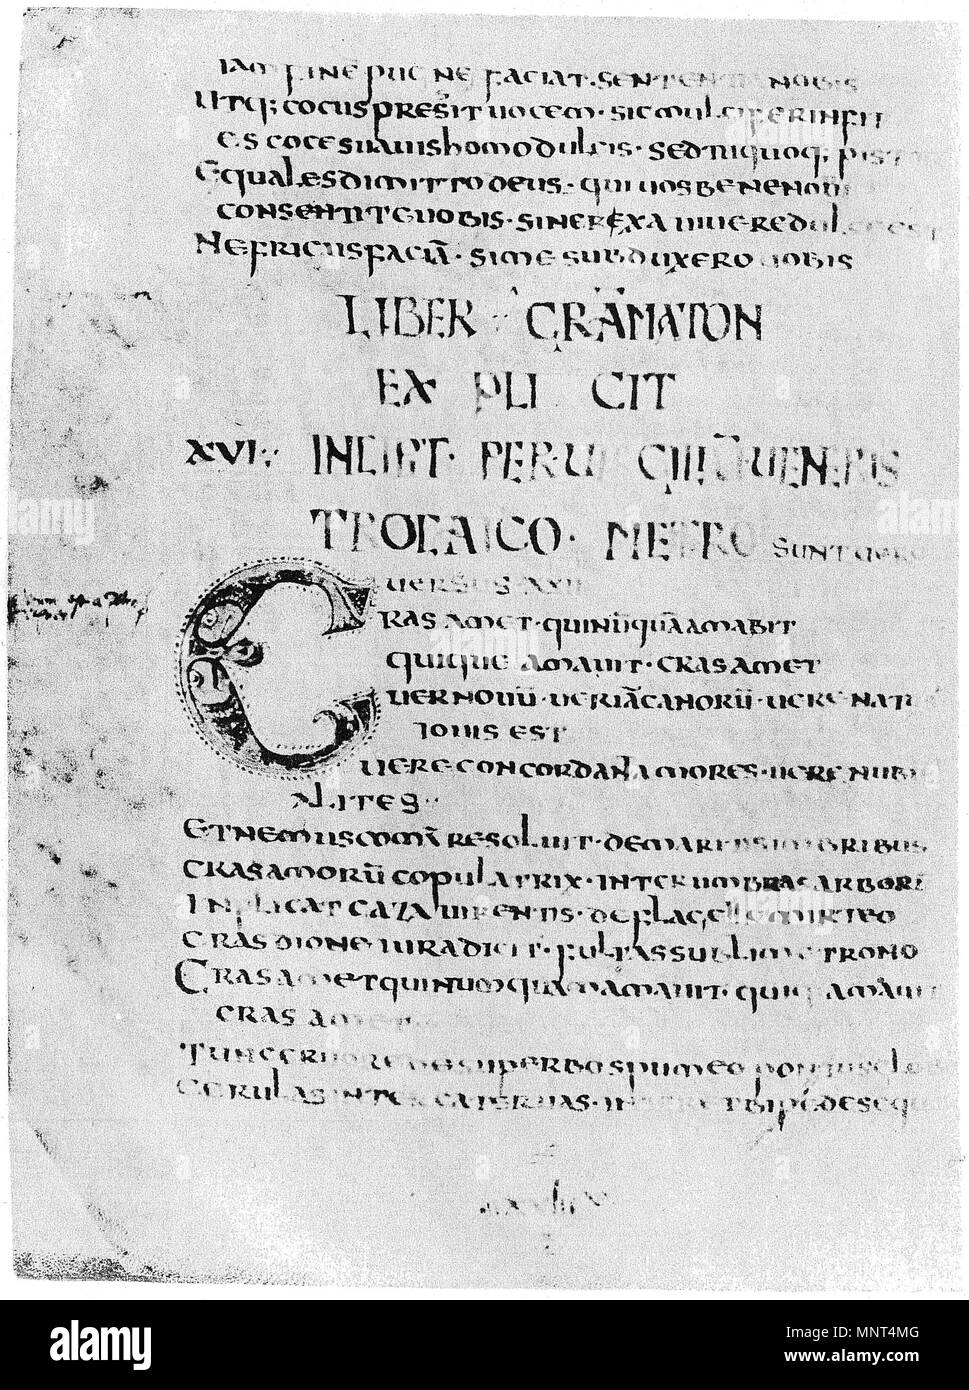 IAM FINE PUGNE FACIAT · SENTENTIA NOBIS
UTQ; COCUS PRESSIT UOCEM · SIC MULCIFER INFIT
ES COCE SUAUIS HOMO DULCIS · SED TU QUOQ; PISTOR
EQUALES DIMITTO DEUS · QUI UOS BENE NOUI
CONSENTIT E UOBIS · SINE RIXA UIUERE DULCE EST
NE FRIGUS FACIĀ · SI ME SUBDUXERO UOBIS
LIBER GRĀMATON
EX PLI CIT
XVI INCIPT · PER UI GILIŪ UENERIS
TROCAICO · METRO SUNT UERO
UERSUS XXII
CRAS AMET · QUI NŪQUĀ AMABIT
QUIQUE AMAUIT · CRAS AMET
UER NOUŪ · UER IĀ CANORŪ · UERE NATUS
IOUIS EST
UERE CONCORDANT AMORES · UERE NUBUNT
ALITES
ET NEMUS COMĀ RESOLUIT · DE MARITIS IMBRIBUS
CRAS AMORŪ COPULATRIX · INTER UMBRAS ARBORŪ
INPLICAT GAZA UIRENTIS · DE FLAGELLO MIRTEO
CRAS DIONE IURA DICIT · FULTA SUBLIMI TRONO
CRAS AMET QUI NUMQUAM AMAUIT · QUIQ; AMAUIT
CRAS AMET
TUNC CRUORE DE SUPERBO SPUMEO PONTUS GLOBO
CERULAS INTER CATERUAS · INTER ET BIPEDES EQUOS
alamy
Image ID: MNT4MG
www.alamy.com